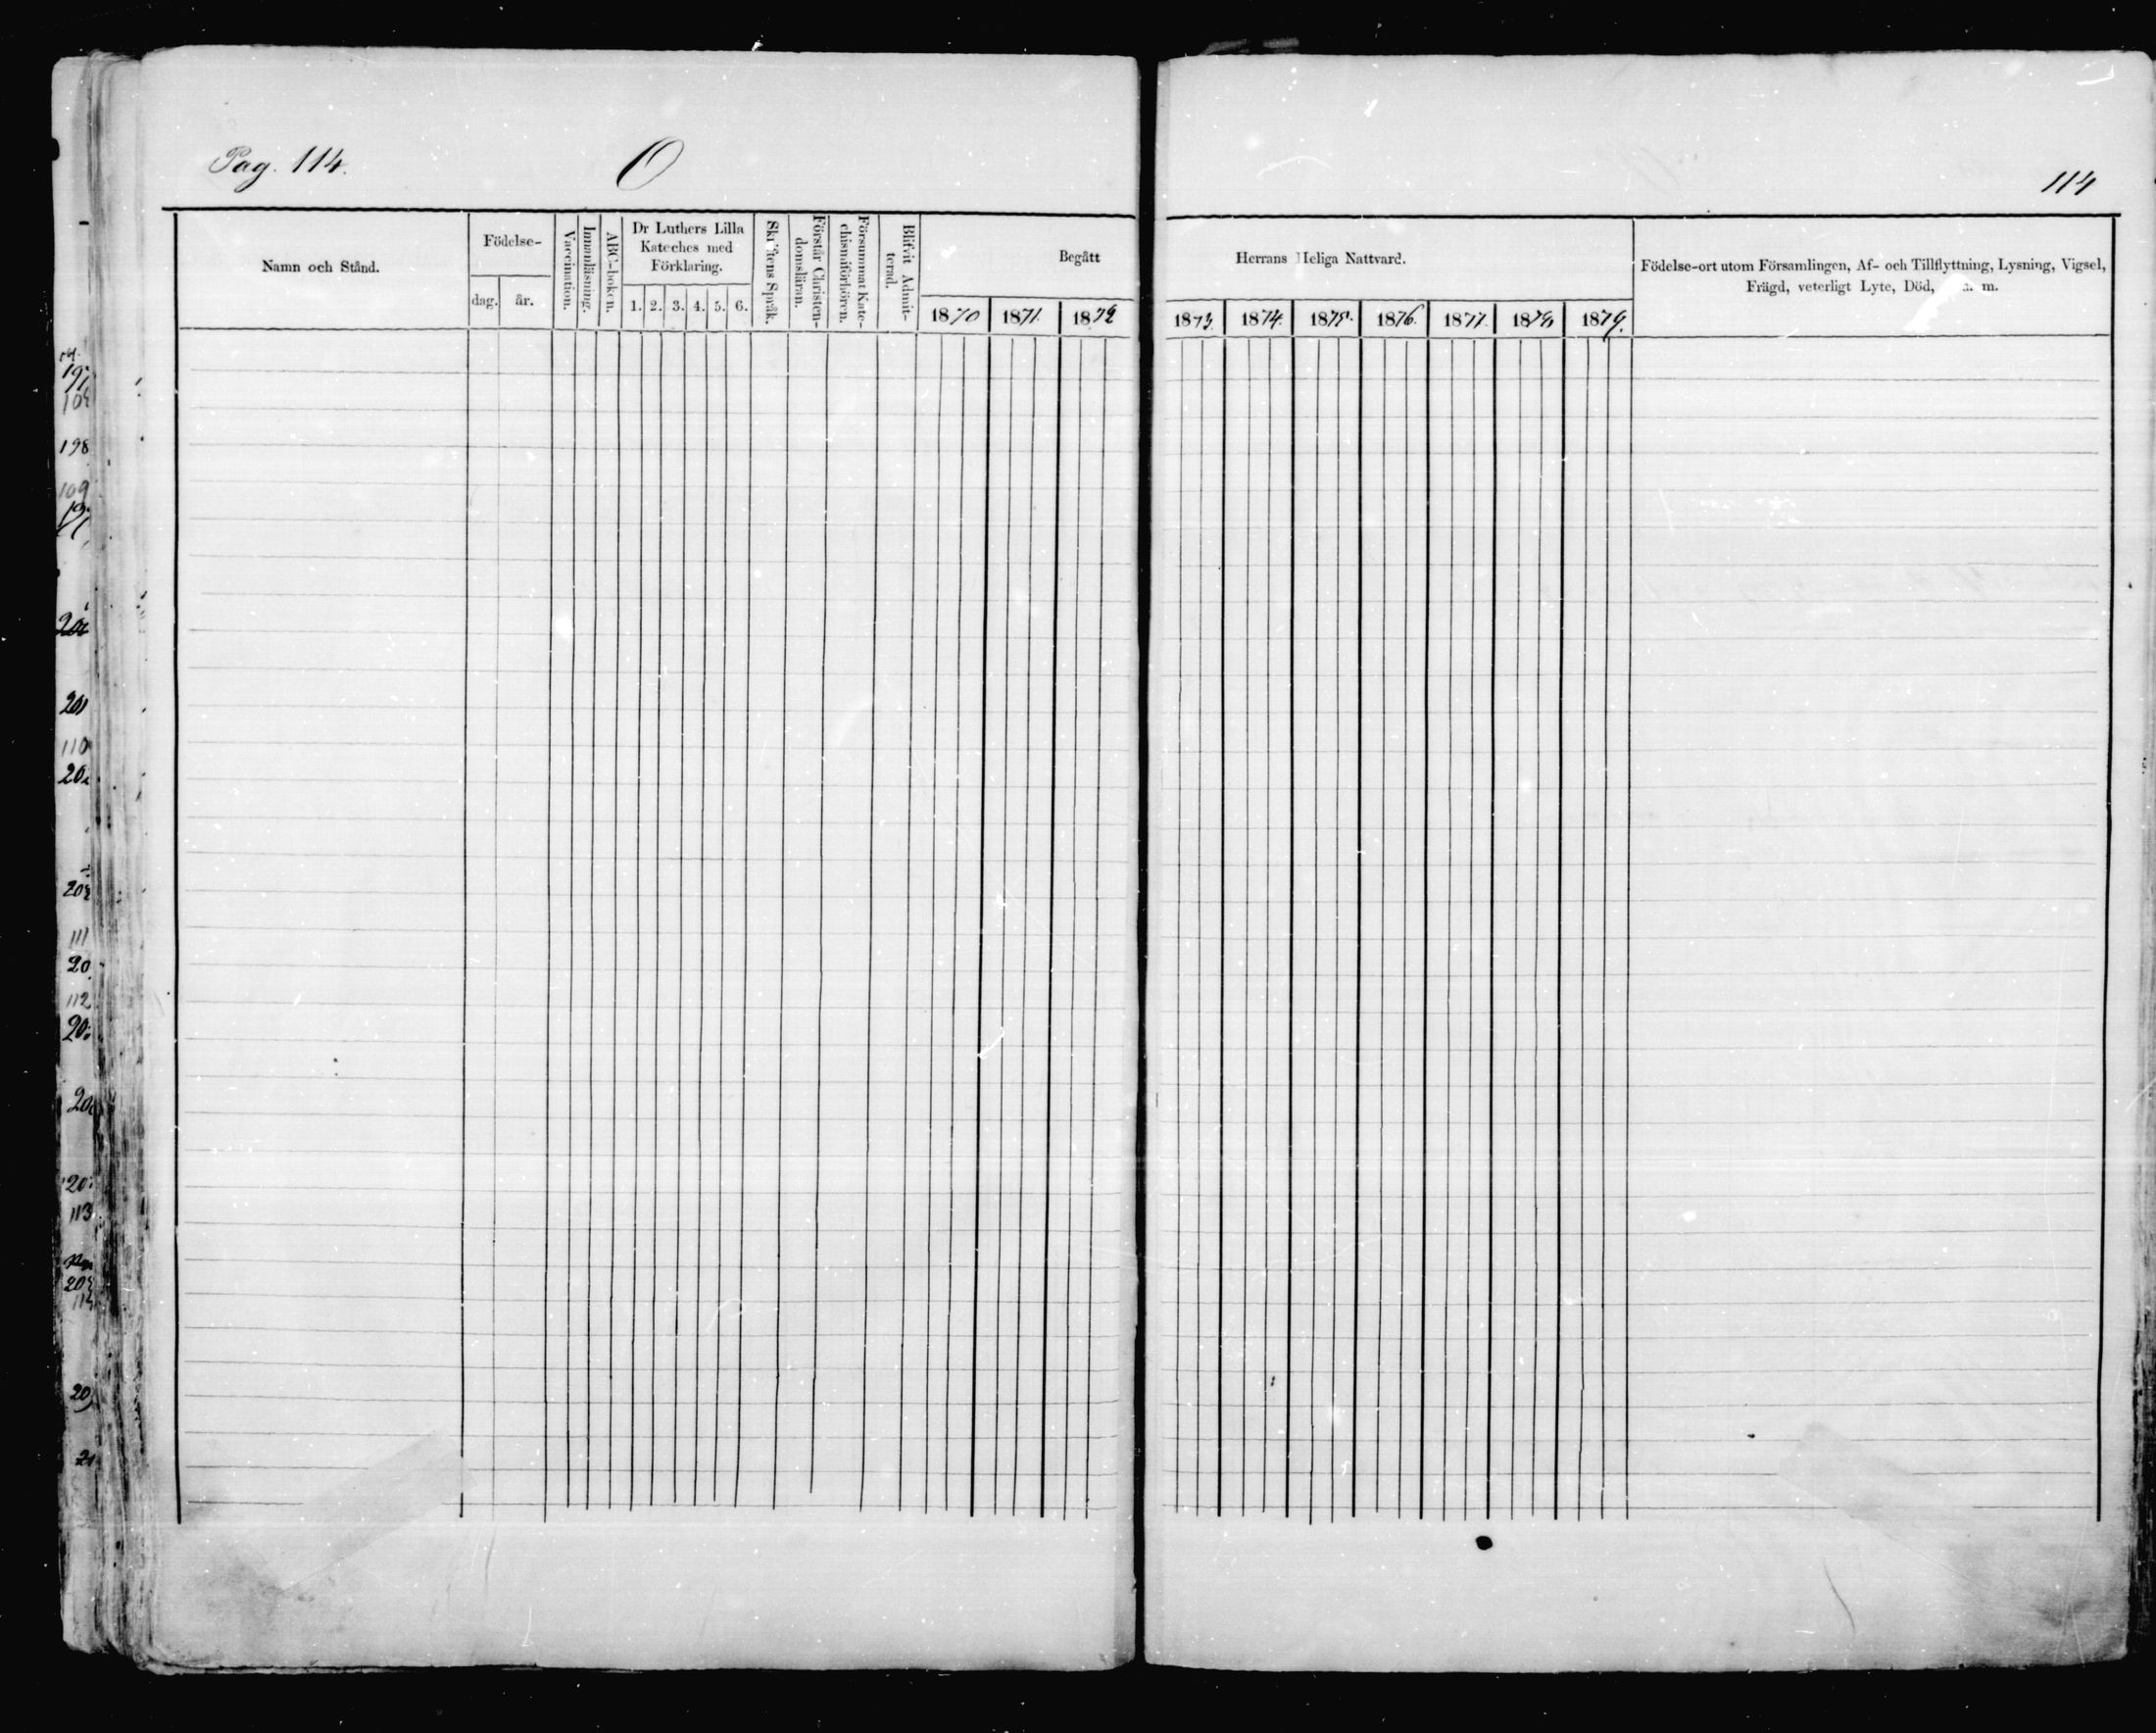 Pag. 114. O 114
Namn och Stånd.
Födelse-
dag. år.
Vaccination.
Innanläsning.
ABC-boken.
Dr Luthers Lilla
Kateches med
Förklaring.
1. 2. 3. 4. 5. 6.
Skriftens Språk.
Förstår Christen-
domsläran.
Försummat Kate-
chismiförhören.
Blifvit Admit-
terad.
Begått Herrans Heliga Nattvard.
1870 1871. 1872 1873. 1874. 1875. 1876. 1877. 1878 1879.
Födelse-ort utom Församlingen, Af- och Tillflyttning, Lysning, Vigsel,
Frägd, veterligt Lyte, Död, m.
198
109
201
110
111
20
112
113